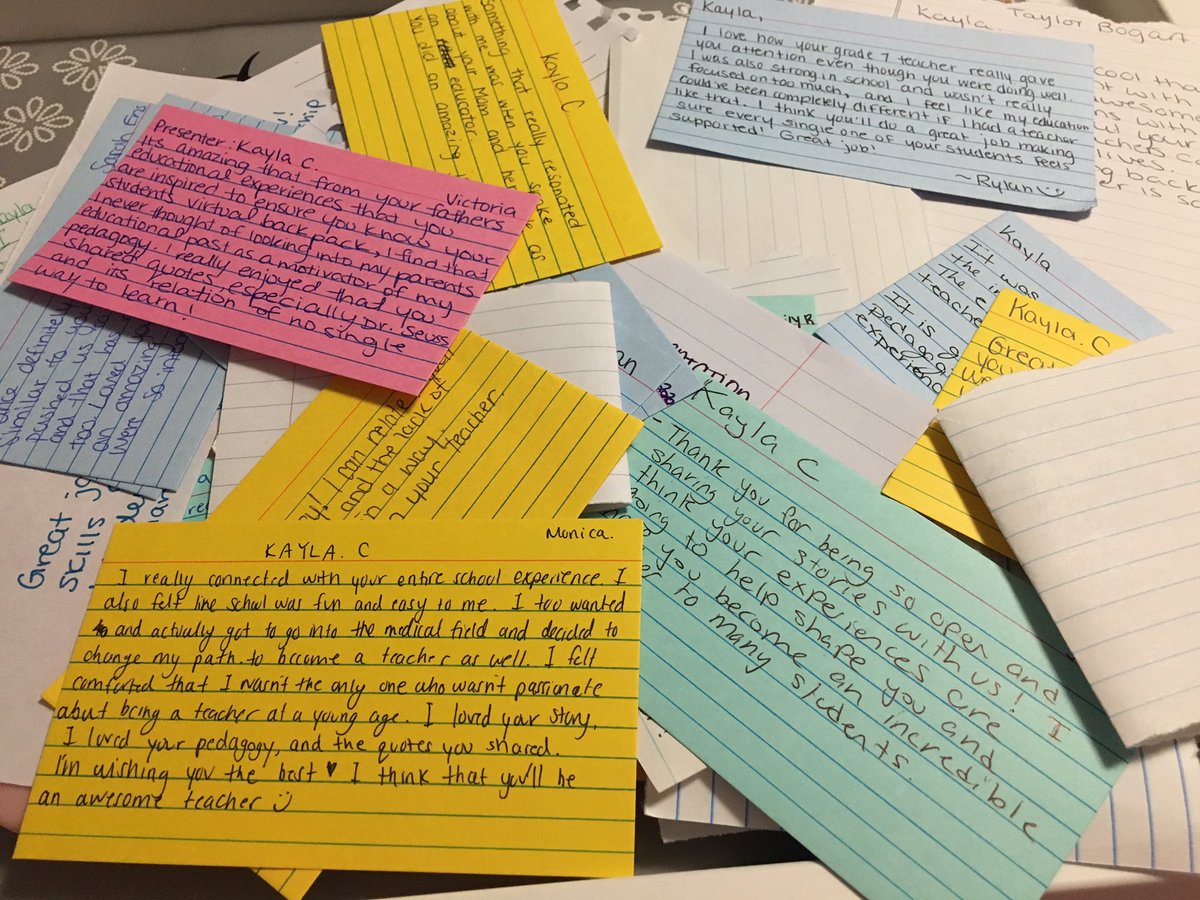 Kayla C
Something that really resonated
with me was when you spoke
about your Mom and her
an educator.
as
You did an amazing
Kayla,
I love how your grade 7 teacher really gave
you attention even though you were doing well.
I was also strong in school and wasn't really
focused on too much, and I feel like my education
could've been completely different if I had a teacher
like that. I think you'll do a great job making
sure every single one of your students feels
supported! Great job!
~Rylun
Kayla.
Taylor Bogart
Presenter: Kayla C.
Victoria
Its amazing that from your fathers
educational experiences that you
are inspired to ensure you know your
students virtual backpack, I find that
I never thought of looking into my parents
educational past as a motivator of my
pedagogy. I really enjoyed that you
shared quotes, especially Dr. Seuss
and its relation of no single
way to learn!
Sarah
definitely
similar to
pushed us
and that us
too. Loved
an amazing
were so
Great
skills
Kayla
It was
the
The
teache
It is
pedagog
experienc
Kayla. C
Great
you
we
! I can relate
and the lack of
in a way.
your teacher.
Kayla C
- Thank you for being so open and
sharing your stories with us! I
think your experiences are
going to help shape you and
you become an incredible
to many students.
Monica.
KAYLA. C
I really connected with your entire school experience. I
also felt like school was fun and easy to me. I too wanted
and actually got to go into the medical field and decided to
change my path to become a teacher as well. I felt
comforted that I wasn't the only one who wasn't passionate
about being a teacher at a young age. I loved your story,
I loved your pedagogy, and the quotes you shared.
I'm wishing you the best ♥ I think that you'll be
an awesome teacher